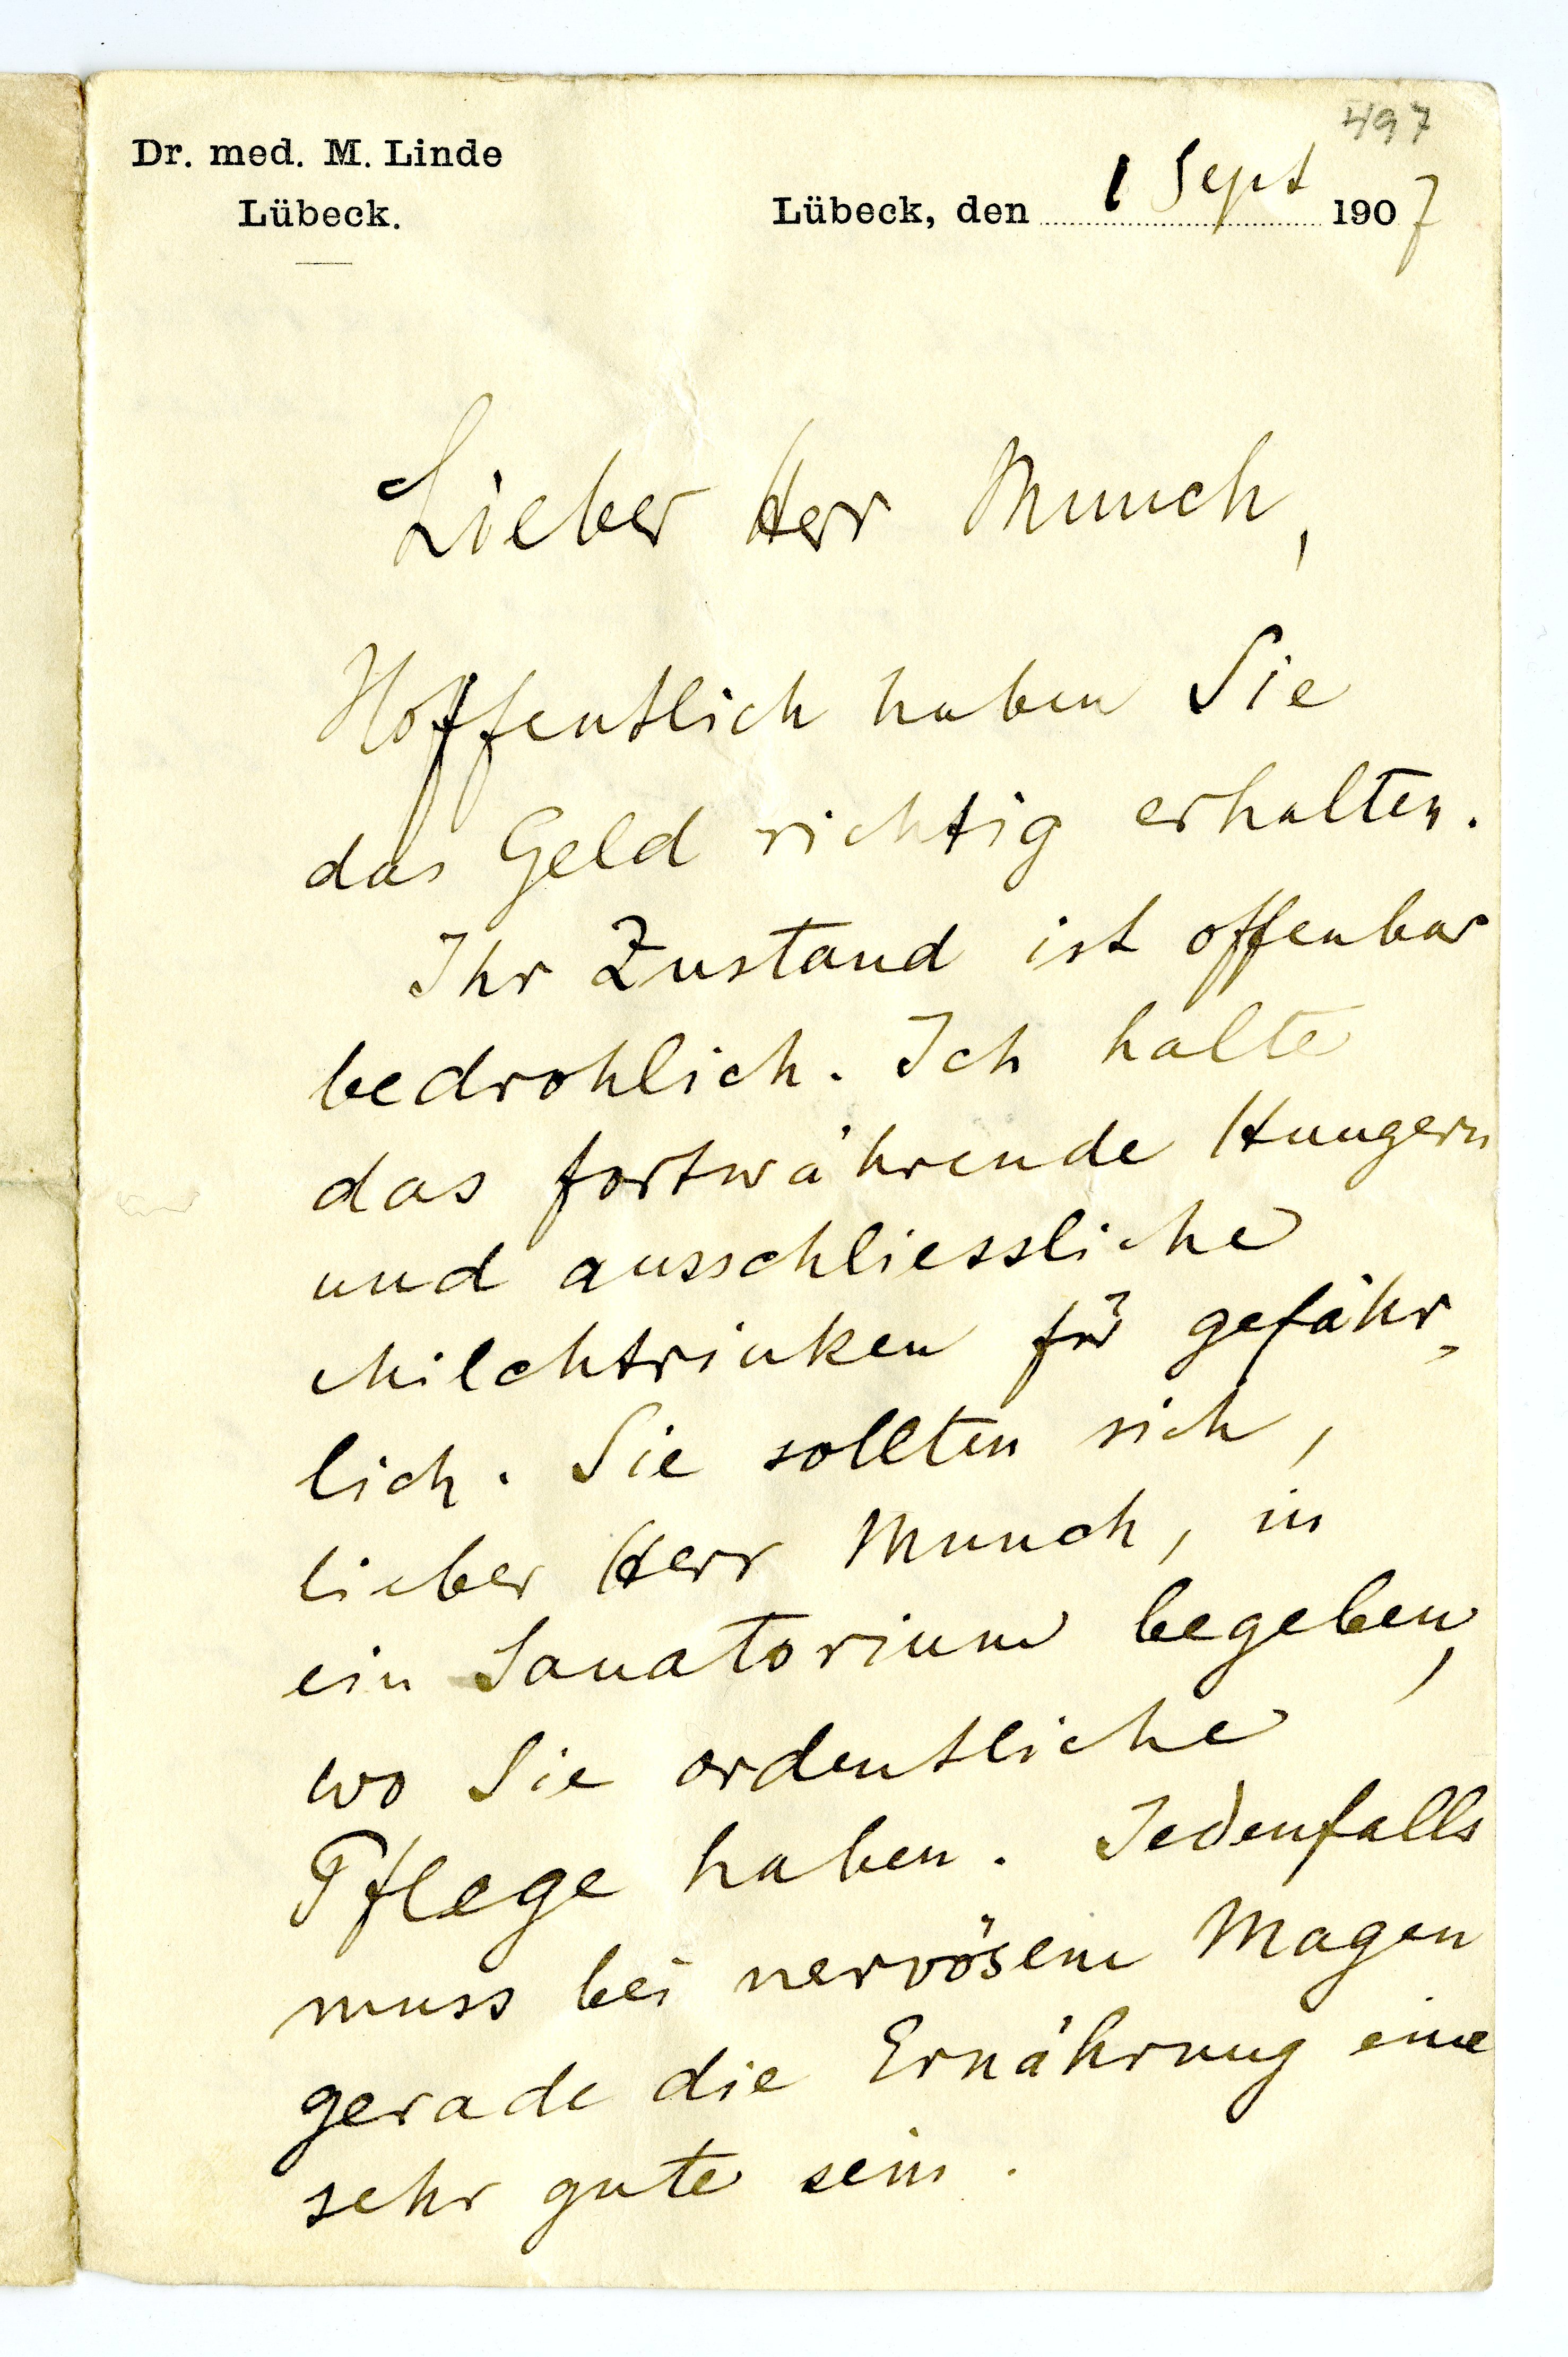 497
Dr. med. M. Linde
Lübeck.
Lübeck, den 1 Sept 1907
Lieber Herr Munch,
Hoffentlich haben Sie
das Geld richtig erhalten.
Ihr Zustand ist offenbar
bedrohlich. Ich halte
das fortwährende Hungern
und ausschliessliche
Milchtrinken für gefähr-
lich. Sie sollten sich,
lieber Herr Munch, in
ein Sanatorium begeben,
wo Sie ordentliche
Pflege haben. Jedenfalls
muss bei nervösem Magen
gerade die Ernährung eine
sehr gute sein.